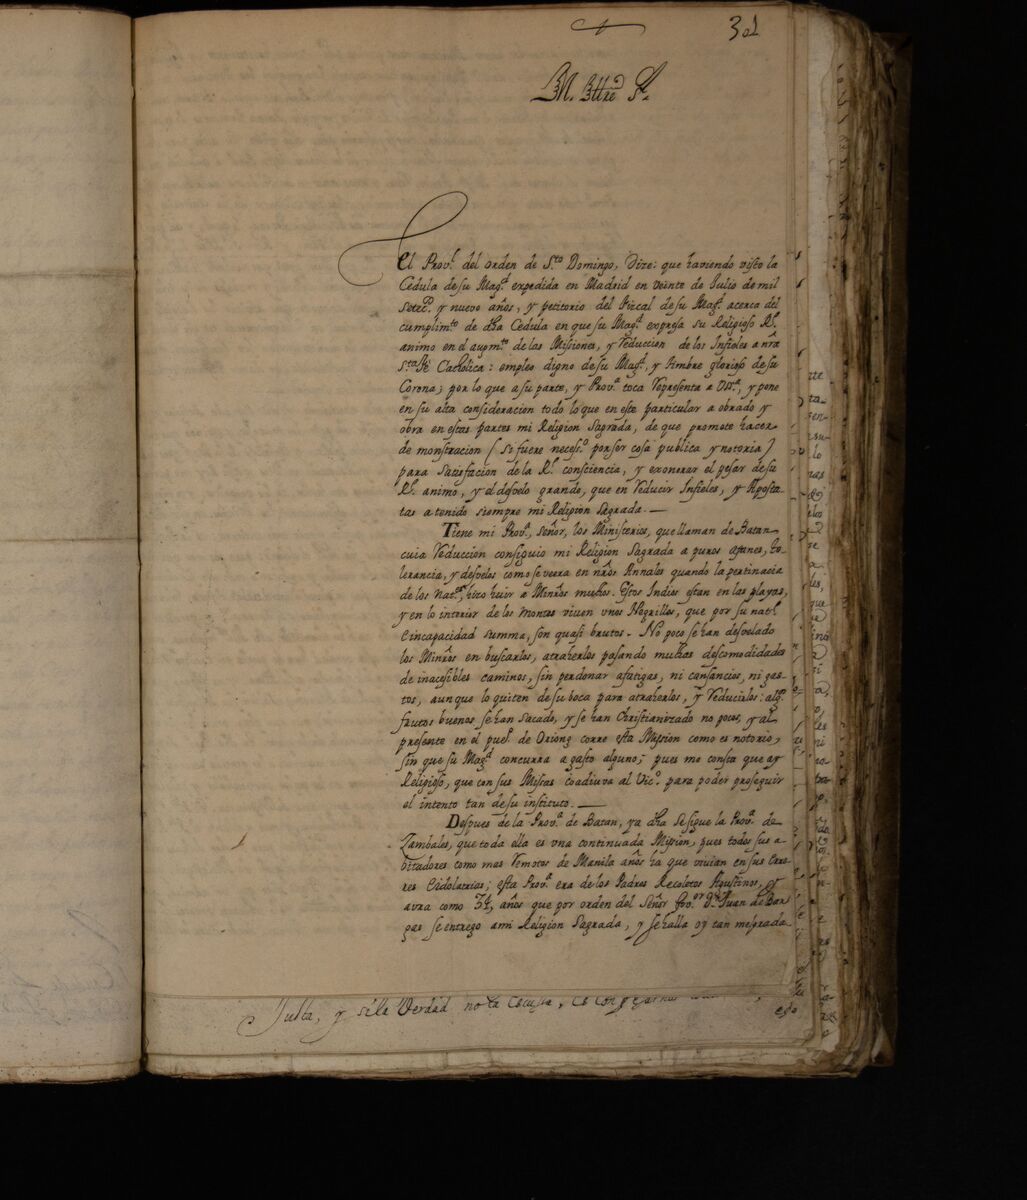 301
M. Ille S.r
El Prov.l del orden de S.to Domingo, Dize: que haviendo visto la
Cedula de su Mag.d expedida en Madrid en veinte de Julio de mil
setec.s y nueve años, y petitorio del Fiscal de su Mag.d acerca del
cumplim.to de dha Cedula en que su Mag.d expresa su Religioso R.l
animo en el augm.to de las Missiones, y Reduccion de los Infieles a nrâ
S.ta Fè Catholica: empleo digno de su Mag.d, y timbre glorioso de su
Corona; por lo que a su parte, y Prov.a toca Representa a Vss.a, y pone
en su alta consideracion todo lo que en este particular a obrado y
obra en estas partes mi Religion Sagrada, de que promete hacer
demonstracion (si fuere neces.o por ser cosa publica y notoria)
para satisfacion de la R.l consciencia, y exonerar el pesar de su
R.l animo, y el desvelo grande, que en reducir Infieles, y Aposta-
tas a tenido siempre mi Religion Sagrada. —
Tiene mi Prov.a, Señor, los Ministerios, que llaman de Batan
cuia Reduccion consiguio mi Religion Sagrada a puros afanes, to-
lerancia, y desvelos como se verra en nrôs Annales quando la pertinacia
de los Nat.es, hizo huir a Minrôs muchos. Estos Indios estan en las playas,
y en lo interior de los montes viven unos Negrillos, que por su nat.l
e incapacidad summa, son quasi brutos. No poco se han desvelado
los Minrôs en buscarlos, atraherlos pasando muchas descomodidades
de inacesibles caminos, sin perdonar a fatigas, ni cansancios, ni gas-
tos, aunque lo quiten de su boca para atraherlos, y Reducirlos: alg.s
frutos buenos se han sacado, y se han Christianizado no pocos, y al
presente en el pueb.o de Oriong corre esta Mission como es notorio,
sin que su Mag.d concurra a gasto alguno; pues me consta que ay
Religioso, que con sus Missas coadiuva al Vic.o para poder proseguir
el intento tan de su instituto. —
Despues de la Prov.a de Batan, ya dha se sigue la Prov.a de
Zambales, que toda ella es vna continuada Mission, pues todos sus a-
bitadores como mas remotos de Manila años ha que vivian en sus erro-
res e idolatrias; esta Prov.a era de los Padres Recoletos Agustinos, y
avra como 34, años que por orden del Señor Gov.or D.n Juan de Bar
gas se entrego a mi Religion Sagrada, y se halla oy tan mejorada
Justa, y si la Verdad no la escusa, es